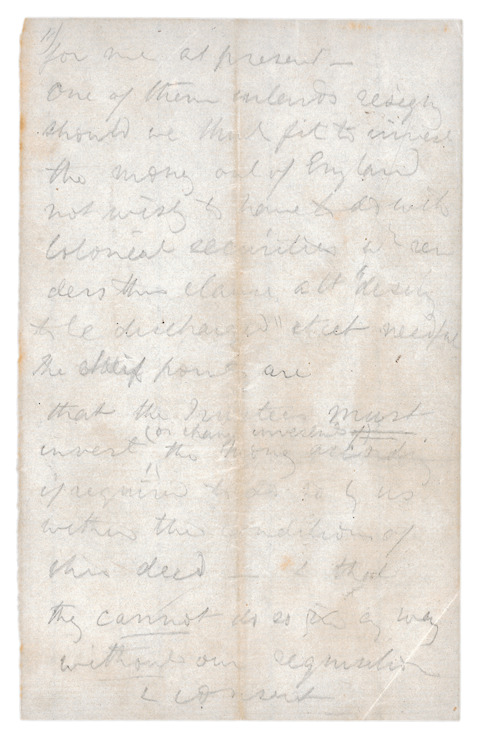 for me at present –
One of them intends resign
should we think fit to invest
the money out of England
not wish to have to do with
Colonial securities wh ren
ders this clause, abt "desiring
to be discharged" etcet needful
The chief points are
that the Trustees must
(or change investment of)
invest the money accordingly
if required to do so by us
within the conditions of
this deed – & that
they cannot do so in any way
without our requisition
& consent